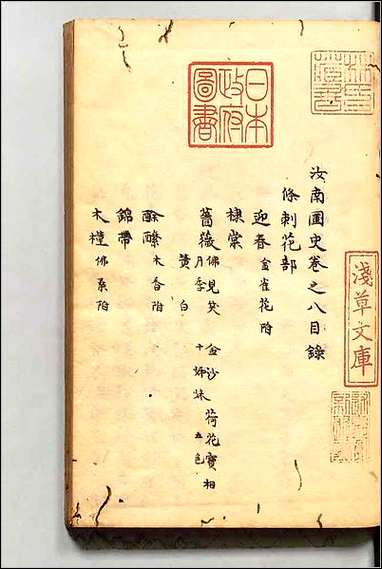 汝南圃史卷之八目錄
條刺花部
迎春 金雀花附
棣棠
薔薇 佛見笑 金沙 荷花 寶相
月季 十姊妹 五色
黃 白
酴醾 木香附
錦帶
木槿 佛桑附
日本
政府
圖書
淺草文庫